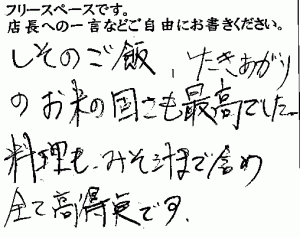 フリースペースです。
店長への一言などご自由にお書きください。
しそのご飯、たきあがり
のお米の固さも最高でした。
料理も、みそ汁まで含め
全て高得点です。